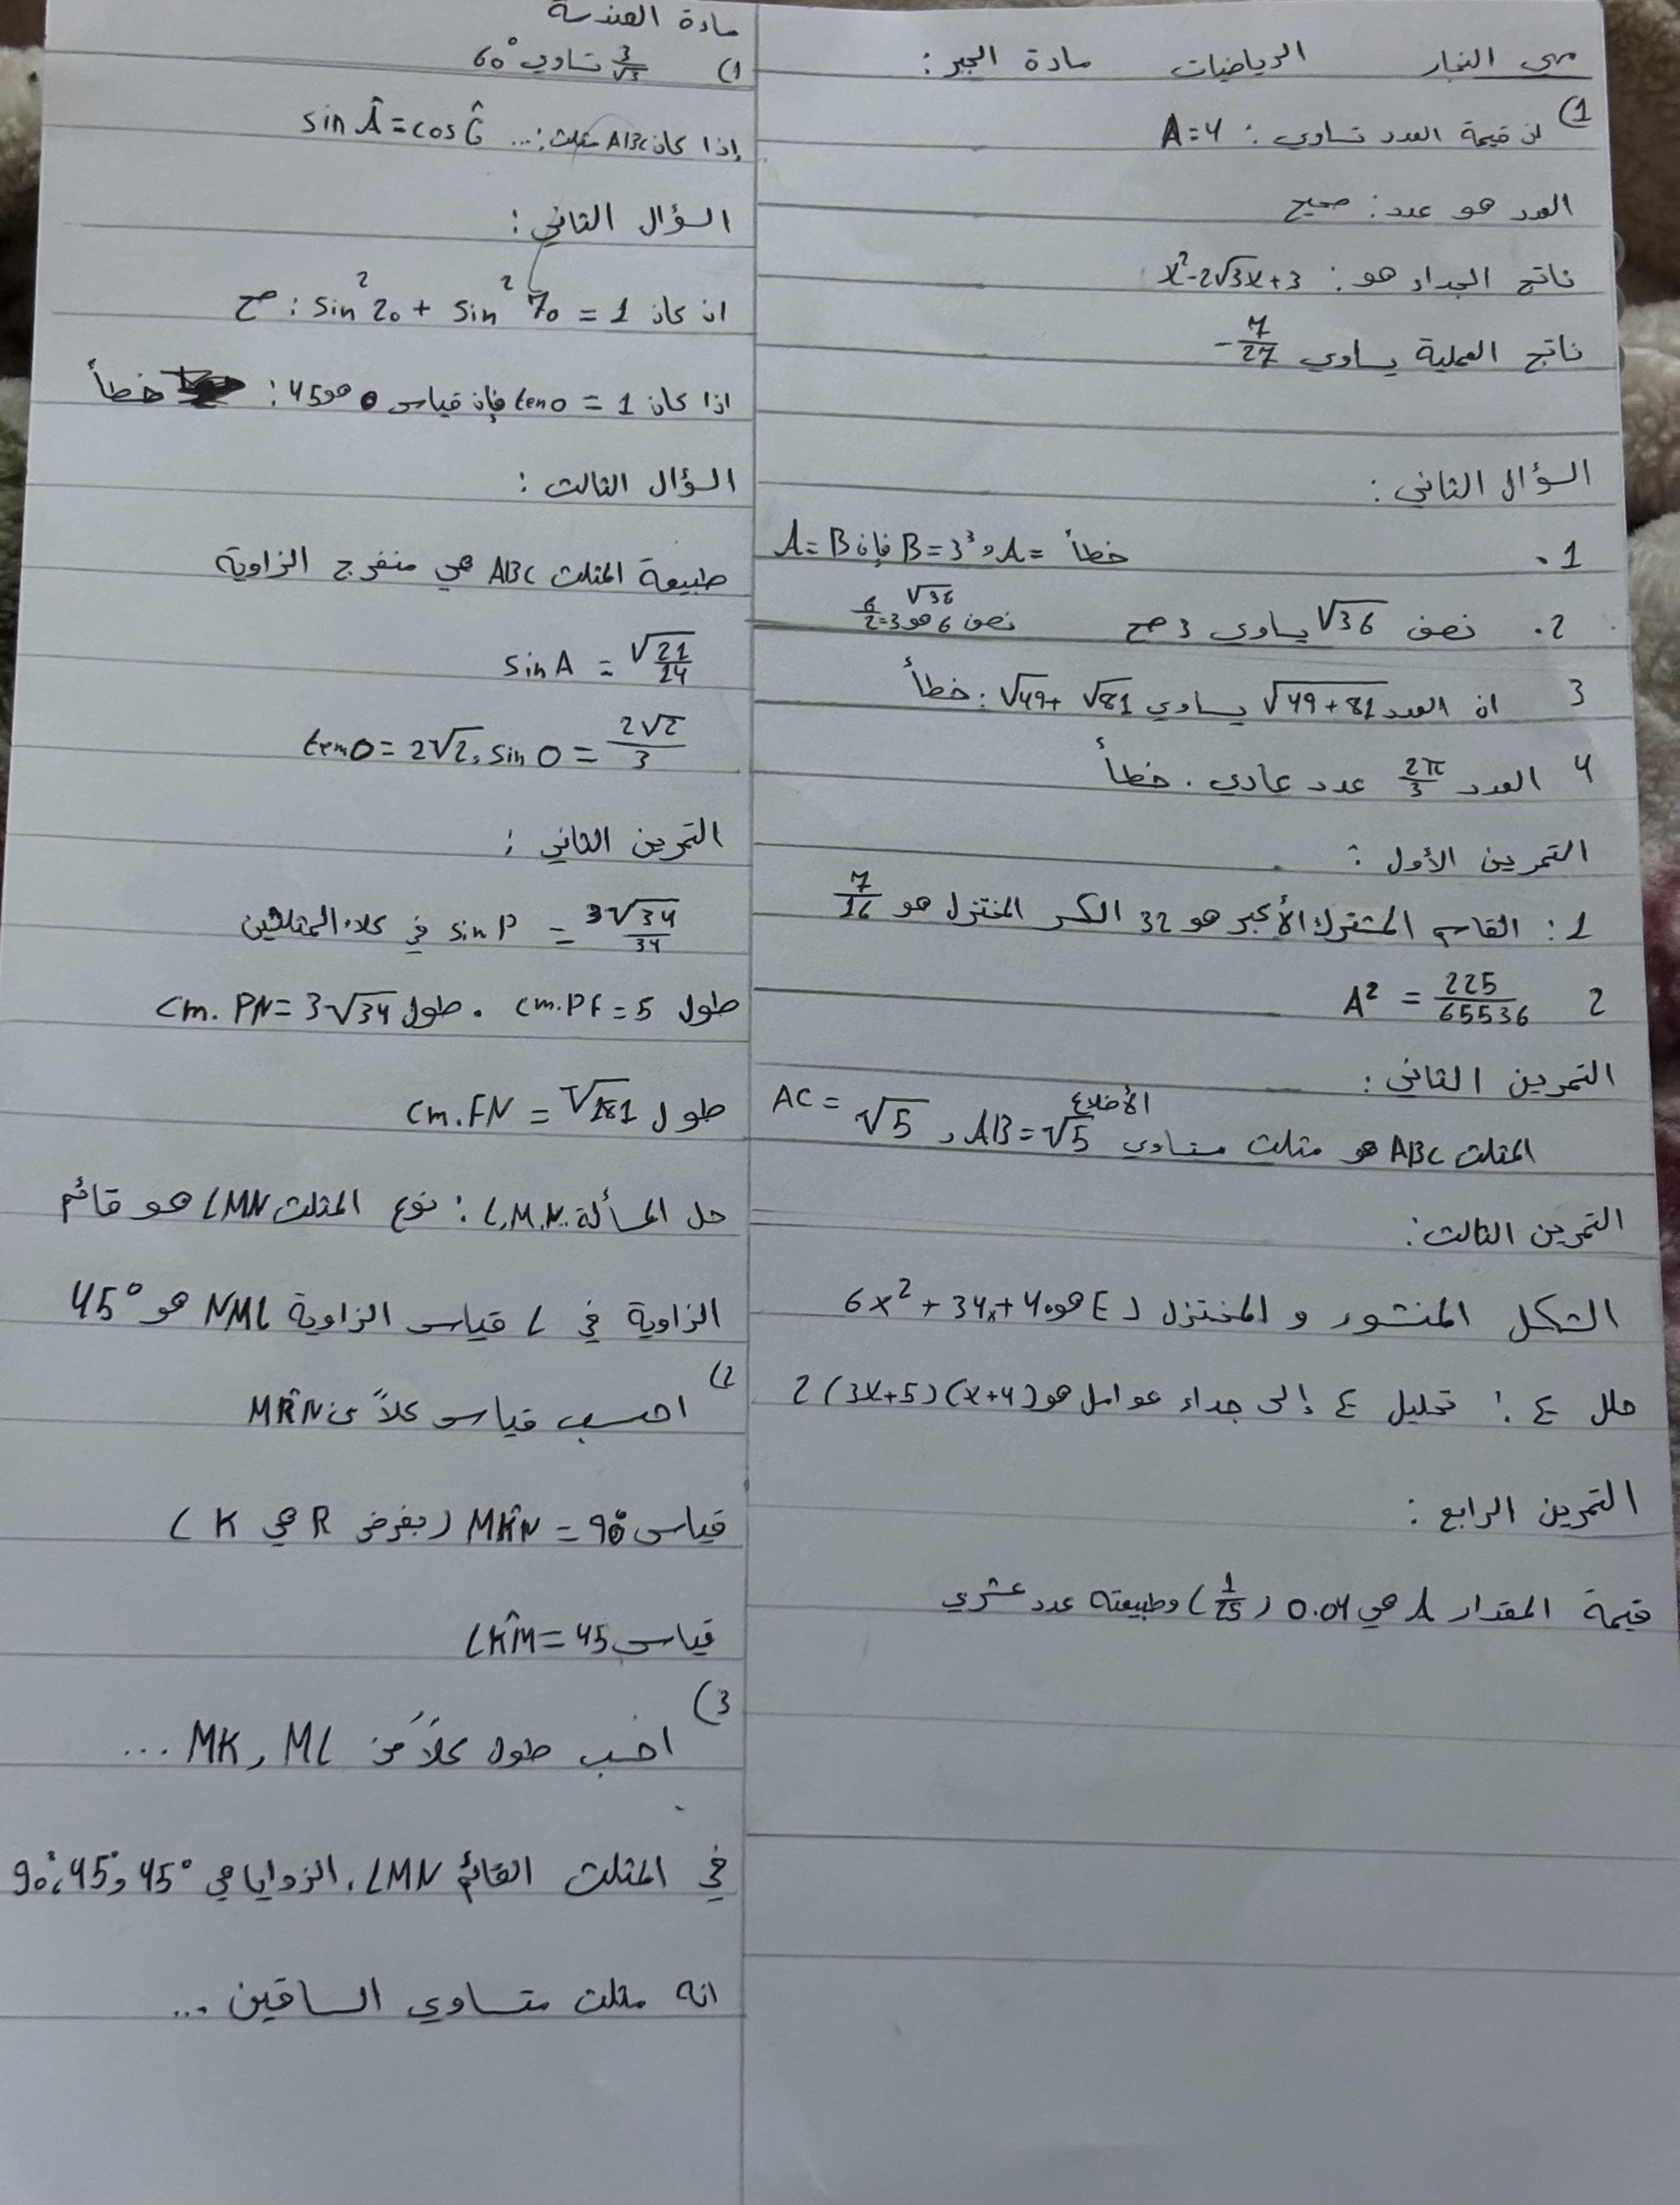 مهى النجار الرياضيات مادة الجبر:
1) إن قيمة العدد تساوي: A=4
العدد هو عدد: صحيح
ناتج الجداء هو: x²-2√3x+3
ناتج العملية يساوي -7/27
السؤال الثاني:
1. خطأ A= و B=3³ فإن A=B
2. نصف √36 يساوي 3 صح نصف √36 6 هو 3=6/2
3 ان العدد √49+81 يساوي √49+√81: خطأ
4 العدد 2π/3 عدد عادي. خطأ
التمرين الأول:
1: القاسم المشترك الأكبر هو 32 الكسر المختزل هو 7/16
2 A²=225/65536
التمرين الثاني:
المثلث ABC هو مثلث متساوي الأضلاع AB=√5, AC=√5
التمرين الثالث:
الشكل المنشور و المختزل لـ E هو 6x²+34x+40
حلل E: تحليل E إلى جداء عوامل هو 2(3x+5)(x+4)
التمرين الرابع:
قيمة المقدار A هي 0.04 (1/25) وطبيعته عدد عشري
مادة الهندسة
1) 3/√3 تساوي 60°
إذا كان ABC مثلث:... sin Â=cos Ĉ
السؤال الثاني:
ان كان sin²20 + sin²70 = 1: صح
اذا كان ten0 = 1 فإن قياس 0 هو 45: خطأ
السؤال الثالث:
طبيعة المثلث ABC هي منفرج الزاوية
sin A = √21/14
ten0=2√2, sin 0=2√2/3
التمرين الثاني:
sin P = 3√34/34 في كلا المثلثين
طول cm.PF=5. طول cm.PN=3√34
طول cm.FN=√181
حل المسألة L.M.N.: نوع المثلث LMN هو قائم
الزاوية في L قياس الزاوية NML هو 45°
2) احسب قياس كلاً من MR̂N
قياس MK̂N = 90° (بفرض R هي K)
قياس LK̂M=45
3) احسب طول كلاً من MK, ML ...
في المثلث القائم LMN، الزوايا هي 45° و 45° و 90°
انه مثلث متساوي الساقين ...